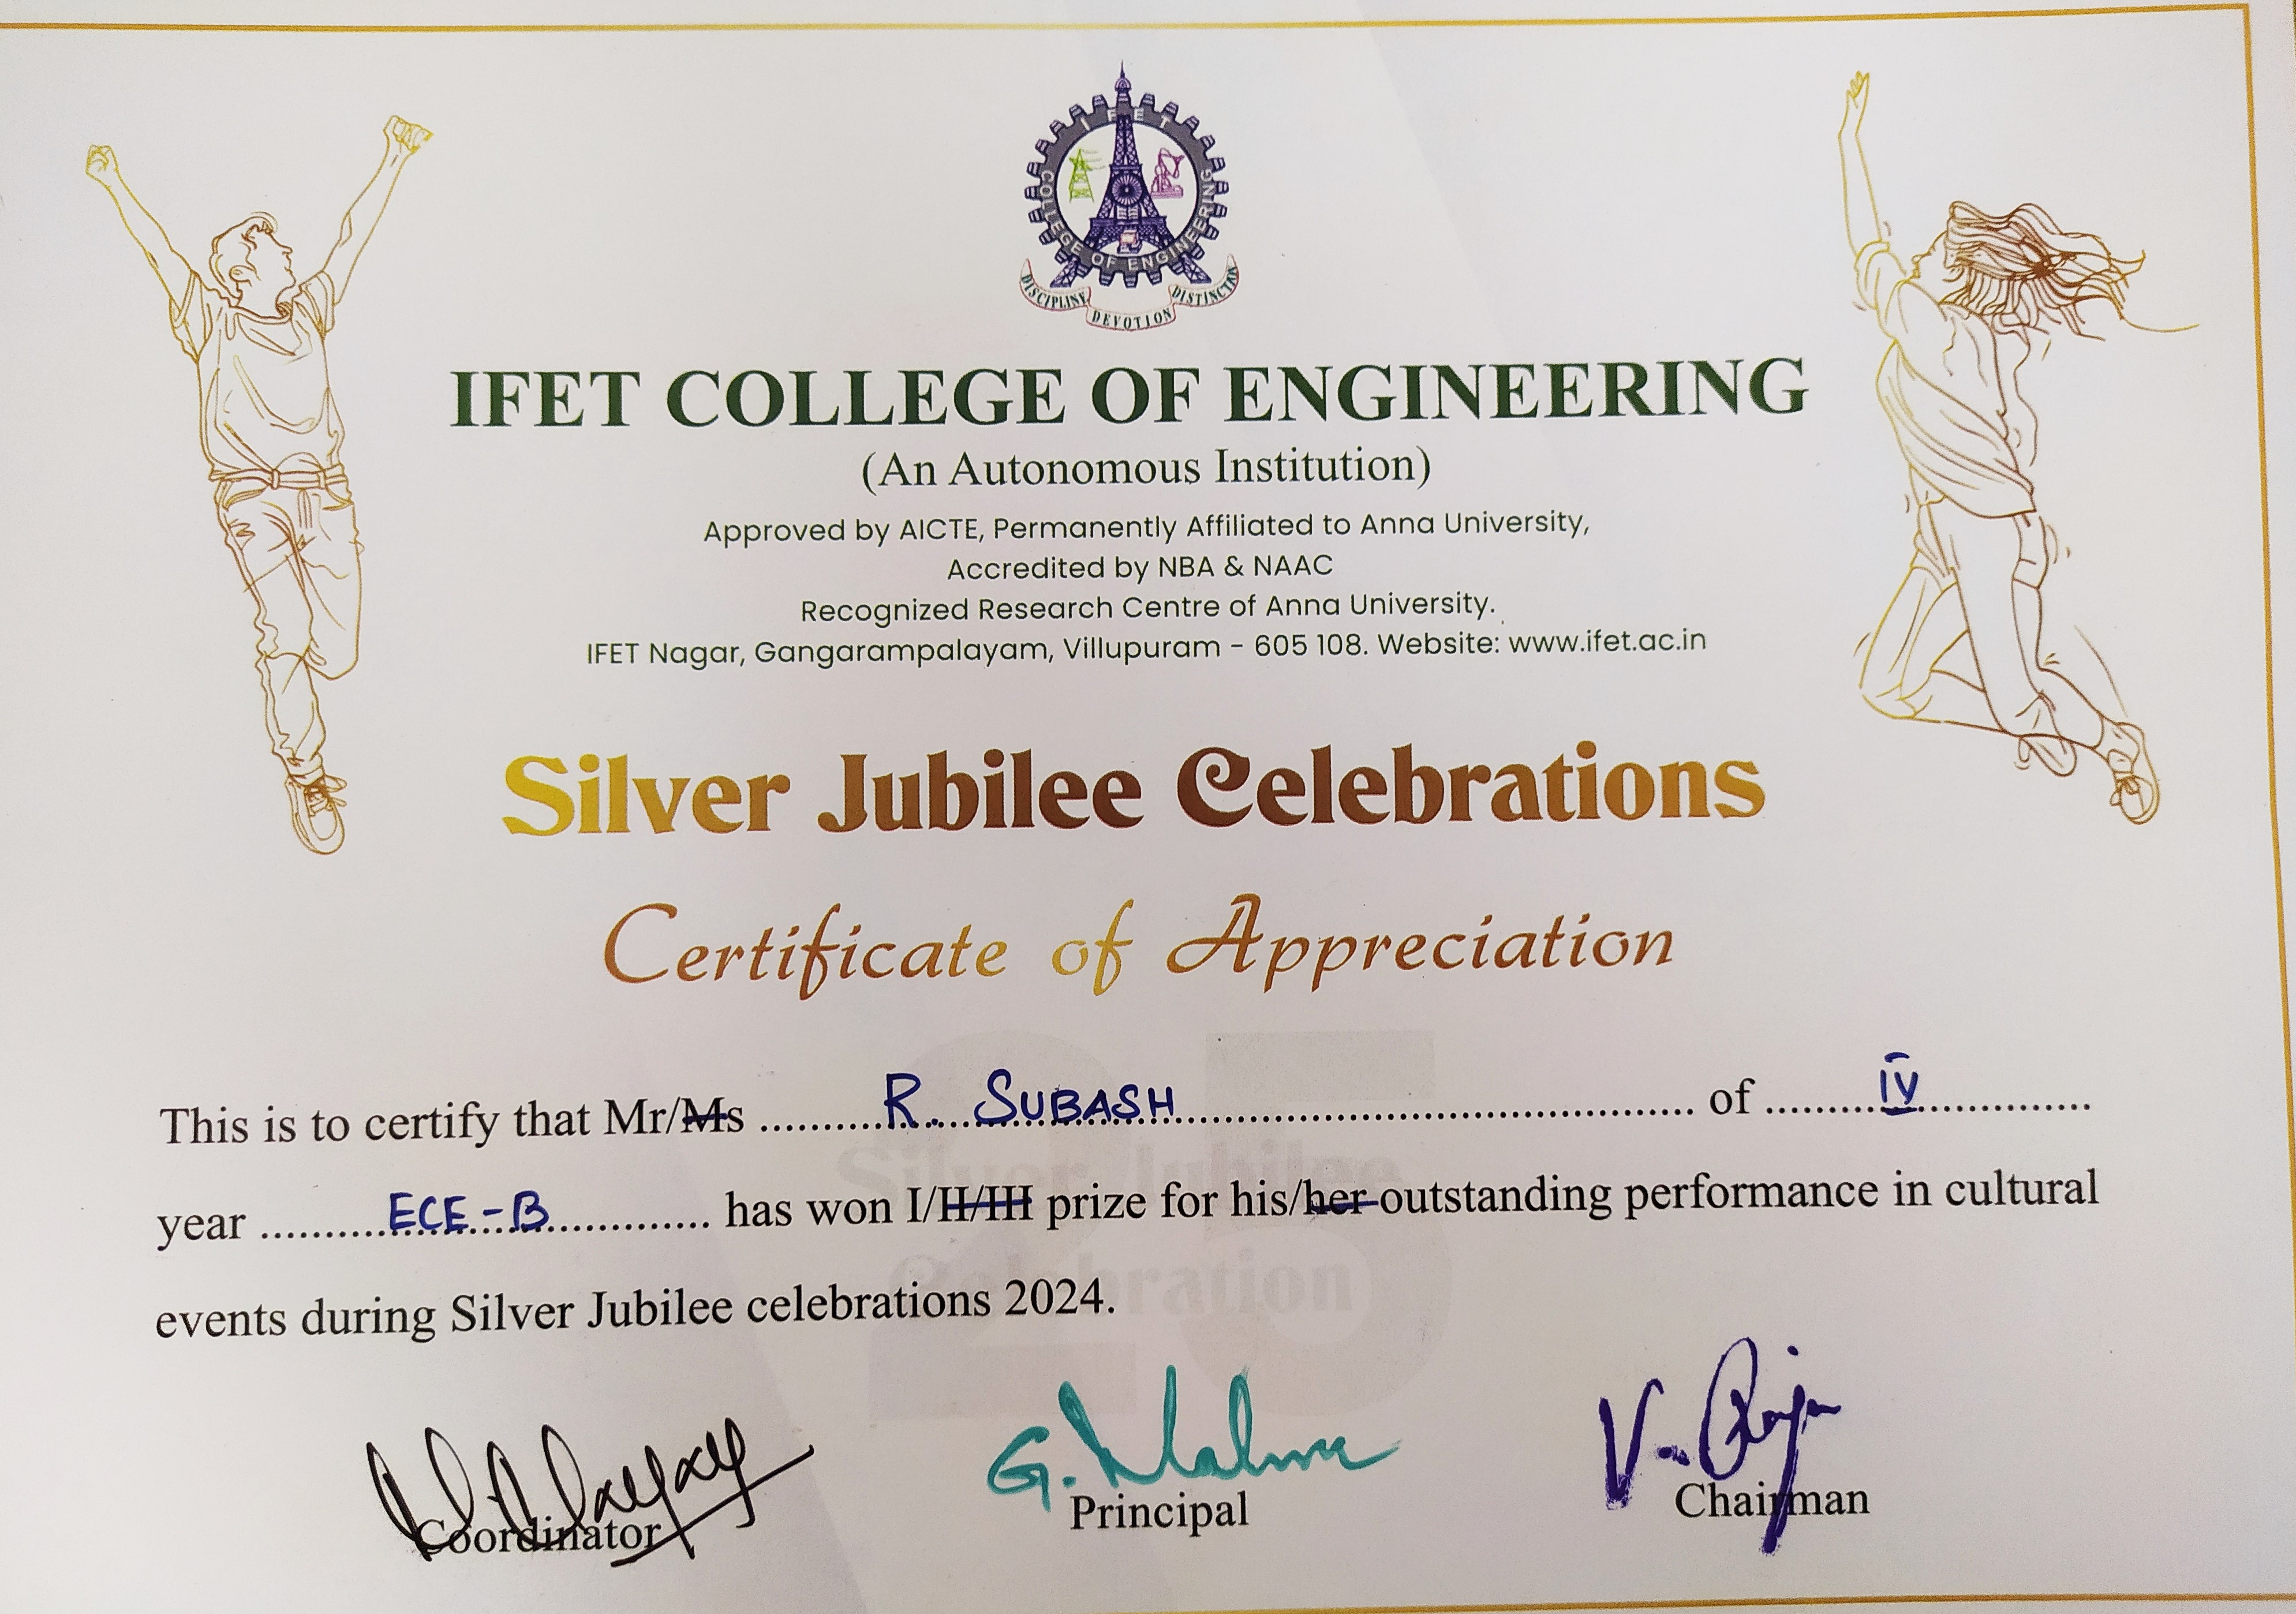 IFET
COLLEGE OF ENGINEERING
DISCIPLINE DEVOTION DISTINCTION
IFET COLLEGE OF ENGINEERING
(An Autonomous Institution)
Approved by AICTE, Permanently Affiliated to Anna University,
Accredited by NBA & NAAC
Recognized Research Centre of Anna University.
IFET Nagar, Gangarampalayam, Villupuram - 605 108. Website: www.ifet.ac.in
Silver Jubilee Celebrations
Certificate of Appreciation
This is to certify that Mr/Ms R. SUBASH of IV
year ECE-B has won I/II/III prize for his/her outstanding performance in cultural
events during Silver Jubilee celebrations 2024.
25
Silver Jubilee
Celebration
Coordinator Principal Chairman